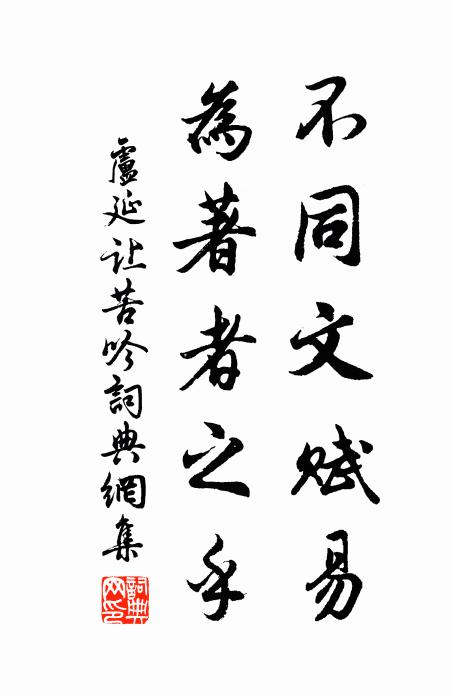 不同文赋易
為著者之乎
盧延让苦吟詞典網集
詞典網印